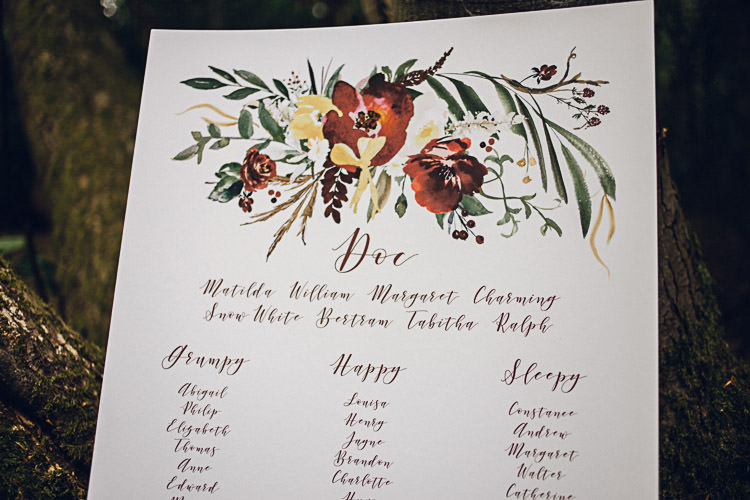 Doc
Matilda William Margaret Charming
Snow White Bertram Tabitha Ralph
Grumpy
Abigail
Philip
Elizabeth
Thomas
Anne
Edward
Happy
Louisa
Henry
Jayne
Brandon
Charlotte
Sleepy
Constance
Andrew
Margaret
Walter
Catherine